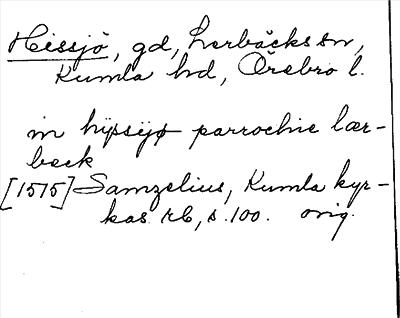 Hissjö, gd, Lerbäcks sn,
Kumla hd, Örebro l.
in hijpsijø parrochie lær-
beck
[1515] Samzelius, Kumla kyr-
kas rb, s. 100. orig.